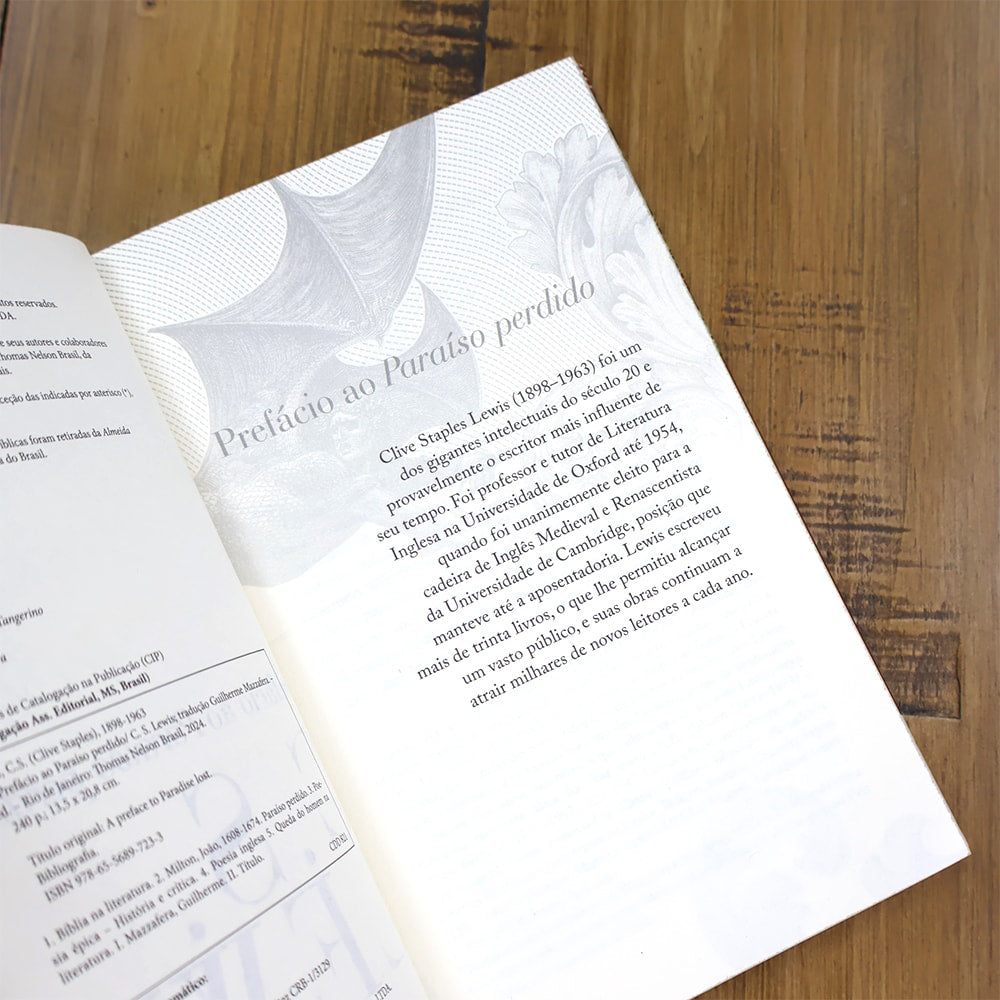 tos reservados.
DA.
e seus autores e colaboradores
Thomas Nelson Brasil, da
ais.
ceção das indicadas por asterisco (*),
blicas foram retiradas da Almeida
a do Brasil.
Tangerino
s de Catalogação na Publicação (CIP)
gação Ass. Editorial, MS, Brasil)
, C.S. (Clive Staples), 1898-1963
Prefácio ao Paraíso perdido/ C. S. Lewis; tradução Guilherme Mazzafera. -
ed. – Rio de Janeiro: Thomas Nelson Brasil, 2024.
240 p.; 13,5 x 20,8 cm.
Título original: A preface to Paradise lost.
Bibliografia.
ISBN 978-65-5689-723-3
1. Bíblia na literatura. 2. Milton, João, 1608-1674. Paraíso perdido. 3. Poe-
sia épica – História e crítica. 4. Poesia inglesa 5. Queda do homem na
literatura. I. Mazzafera, Guilherme. II. Título.
CDD 821
mático:
CRB-1/3129
LTDA
Prefácio ao Paraíso perdido
Clive Staples Lewis (1898–1963) foi um
dos gigantes intelectuais do século 20 e
provavelmente o escritor mais influente de
seu tempo. Foi professor e tutor de Literatura
Inglesa na Universidade de Oxford até 1954,
quando foi unanimemente eleito para a
cadeira de Inglês Medieval e Renascentista
da Universidade de Cambridge, posição que
manteve até a aposentadoria. Lewis escreveu
mais de trinta livros, o que lhe permitiu alcançar
um vasto público, e suas obras continuam a
atrair milhares de novos leitores a cada ano.